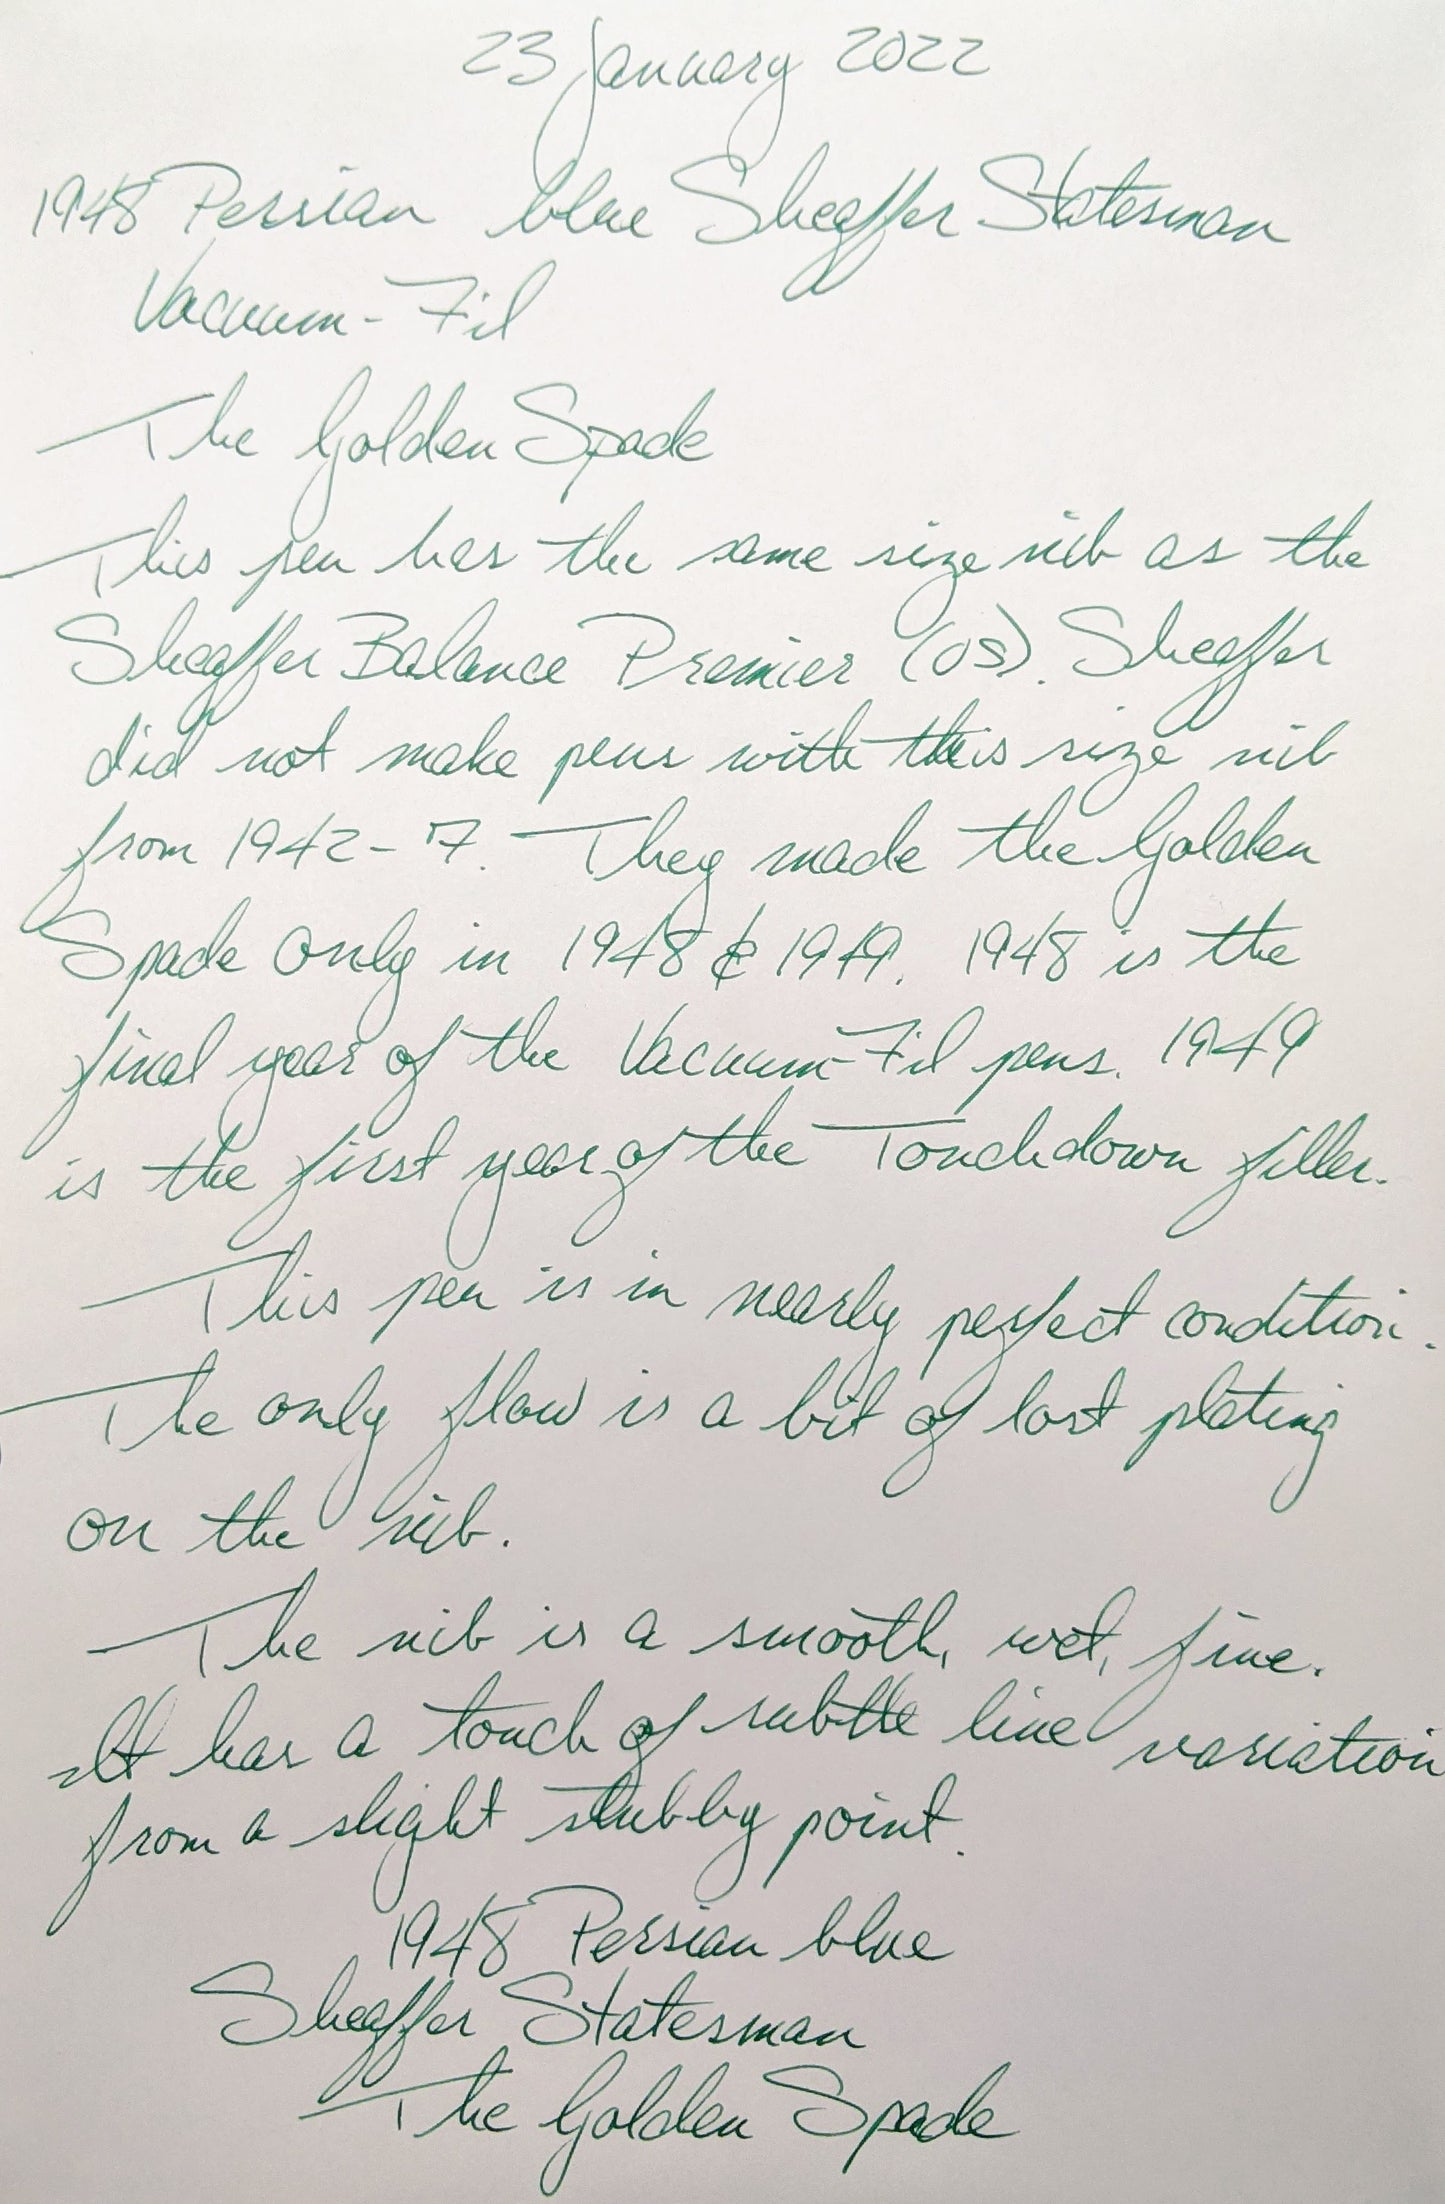 23 January 2022
1948 Persian blue Sheaffer Statesman
Vacuum-Fil
The Golden Spade
This pen has the same size nib as the
Sheaffer Balance Premier (OS). Sheaffer
did not make pens with this size nib
from 1942-'7. They made the Golden
Spade only in 1948 & 1949. 1948 is the
final year of the Vacuum-Fil pens. 1949
is the first year of the Touchdown filler.
This pen is in nearly perfect condition.
The only flaw is a bit of lost plating
on the nib.
The nib is a smooth, wet, fine.
It has a touch of subtle line variation
from a slight stubby point.
1948 Persian blue
Sheaffer Statesman
The Golden Spade